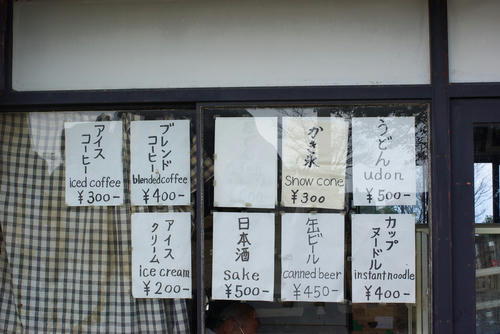 アイス
コーヒー
iced coffee
¥300-
ブレンド
コーヒー
blended coffee
¥400-
かき氷
Snow cone
¥300
うどん
udon
¥500-
アイス
クリーム
ice cream
¥200-
日本酒
sake
¥500-
缶ビール
canned beer
¥450-
カップ
ヌードル
instant noodle
¥400-